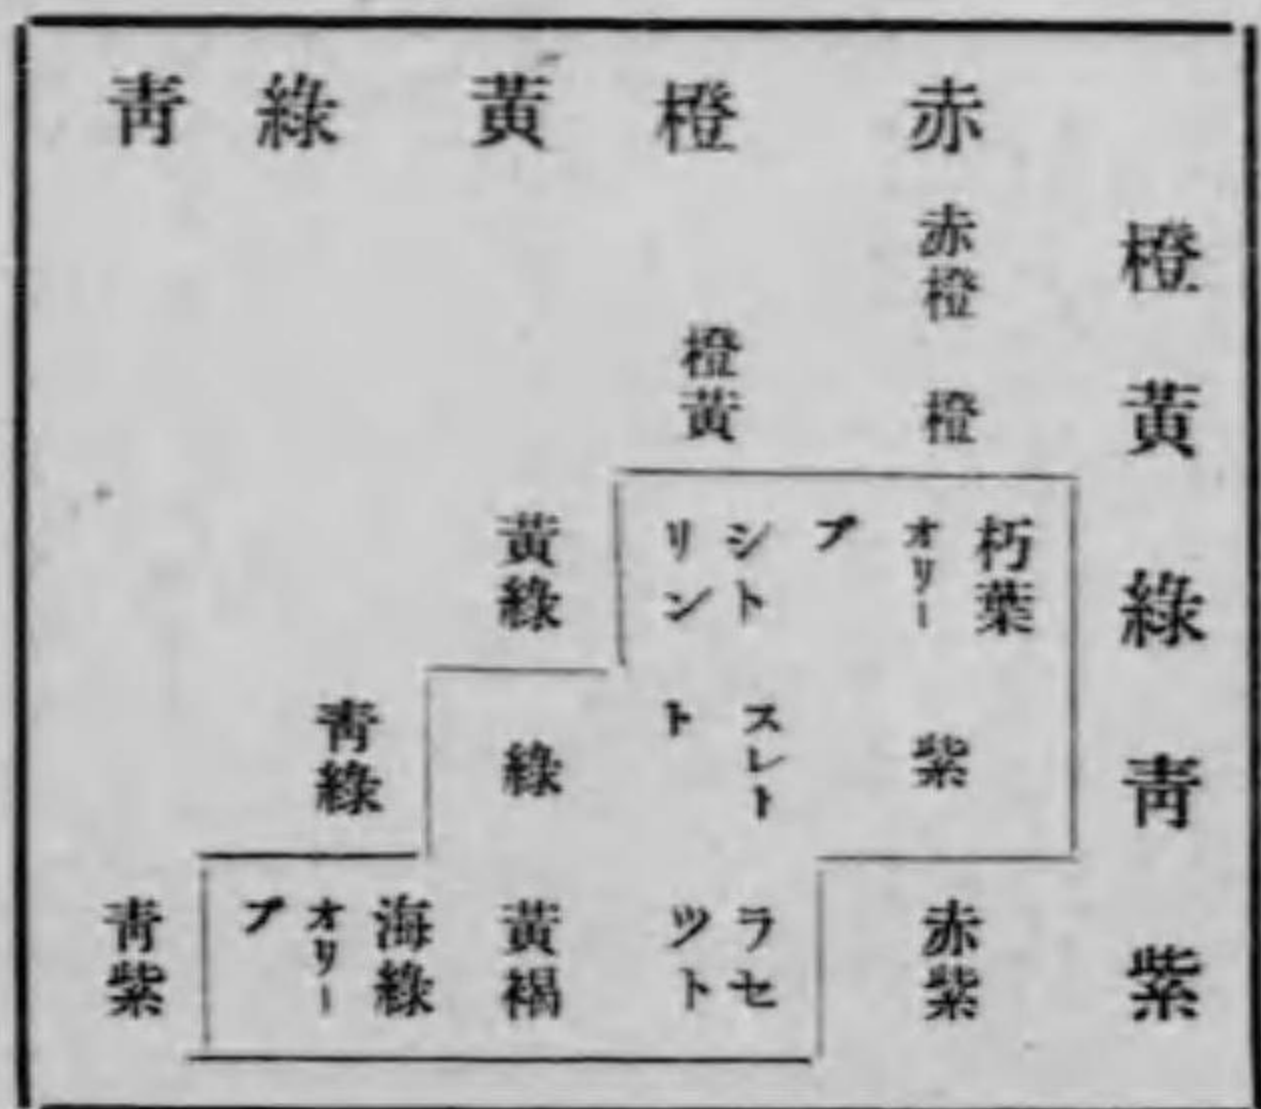 赤 橙 黃 綠 靑
橙 赤橙
黃 橙 橙黃
綠 朽葉オリーブ シトリン 黃綠
靑 紫 スレトト 綠 靑綠
紫 赤紫 ラセツト 黃褐 海綠オリーブ 靑紫